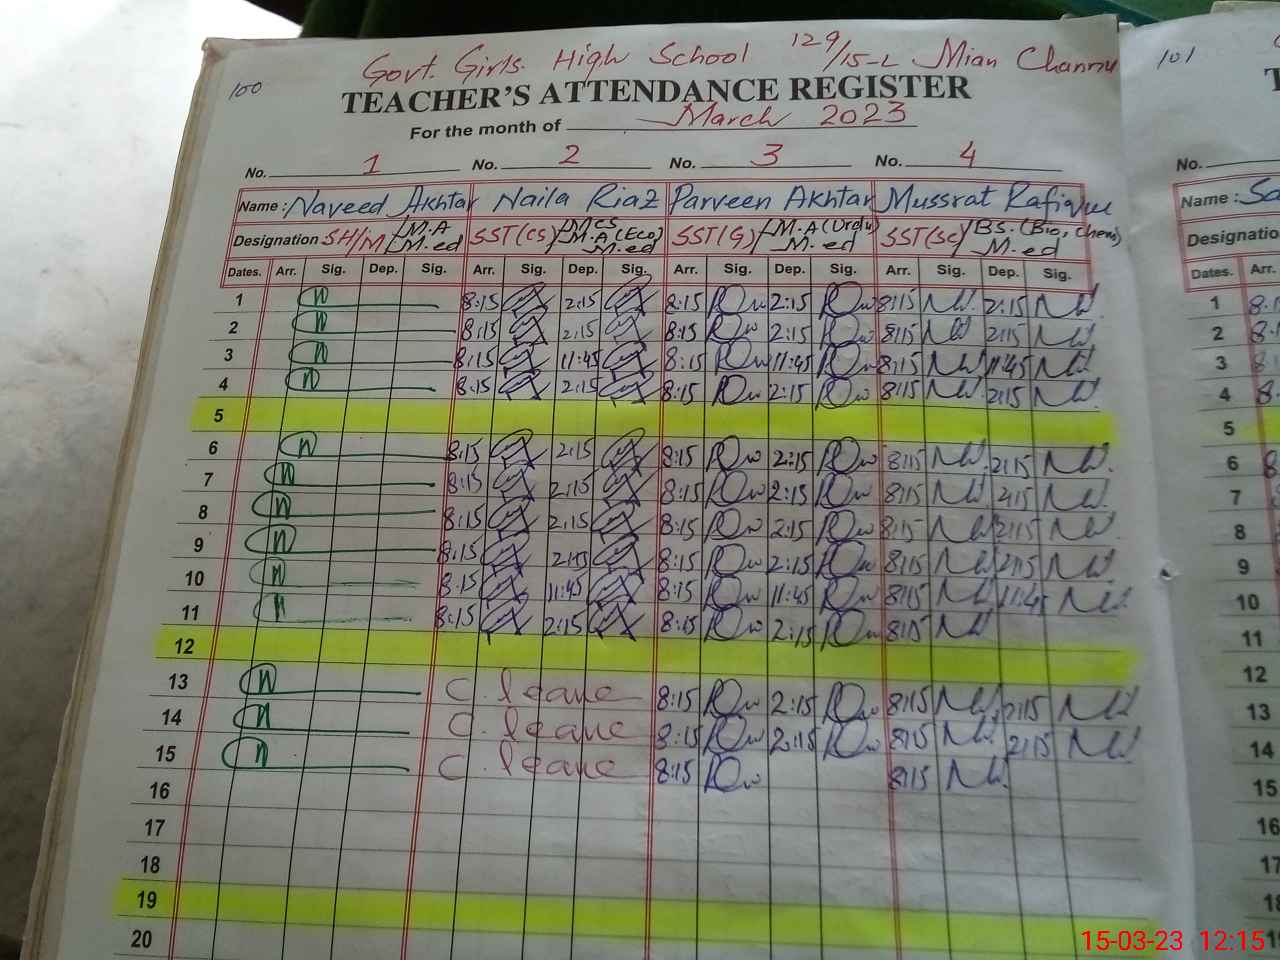 Govt. Girls High School 129/15-L Mian Channu
100
TEACHER'S ATTENDANCE REGISTER
For the month of March 2023
No. 1 No. 2 No. 3 No. 4
Name: Naveed Akhtar Naila Riaz Parveen Akhtar Mussrat Rafique
Designation SH/M M.A M.ed SST(CS) MCS M.A(Eco) M.ed SST(G) M.A(Urdu) M.ed SST(SC) BS.(Bio, Chem) M.ed
Dates. Arr. Sig. Dep. Sig. Arr. Sig. Dep. Sig. Arr. Sig. Dep. Sig. Arr. Sig. Dep. Sig.
1 8:15 2:15 8:15 2:15 8:15 2:15
2 8:15 2:15 8:15 2:15 8:15 2:15
3 8:15 11:45 8:15 11:45 8:15 11:45
4 8:15 2:15 8:15 2:15 8:15 2:15
5
6 8:15 2:15 8:15 2:15 8:15 2:15
7 8:15 2:15 8:15 2:15 8:15 2:15
8 8:15 2:15 8:15 2:15 8:15 2:15
9 8:15 2:15 8:15 2:15 8:15 2:15
10 8:15 11:45 8:15 11:45 8:15 11:45
11 8:15 2:15 8:15 2:15 8:15
12
13 C. leave 8:15 2:15 8:15 2:15
14 C. leave 8:15 2:15 8:15 2:15
15 C. leave 8:15 8:15
16
17
18
19
20
101
No.
Name: Sa
Designatio
Dates. Arr.
1
2
3
4
5
6
7
8
9
10
11
12
13
14
15
16
17
18
19
15-03-23 12:15